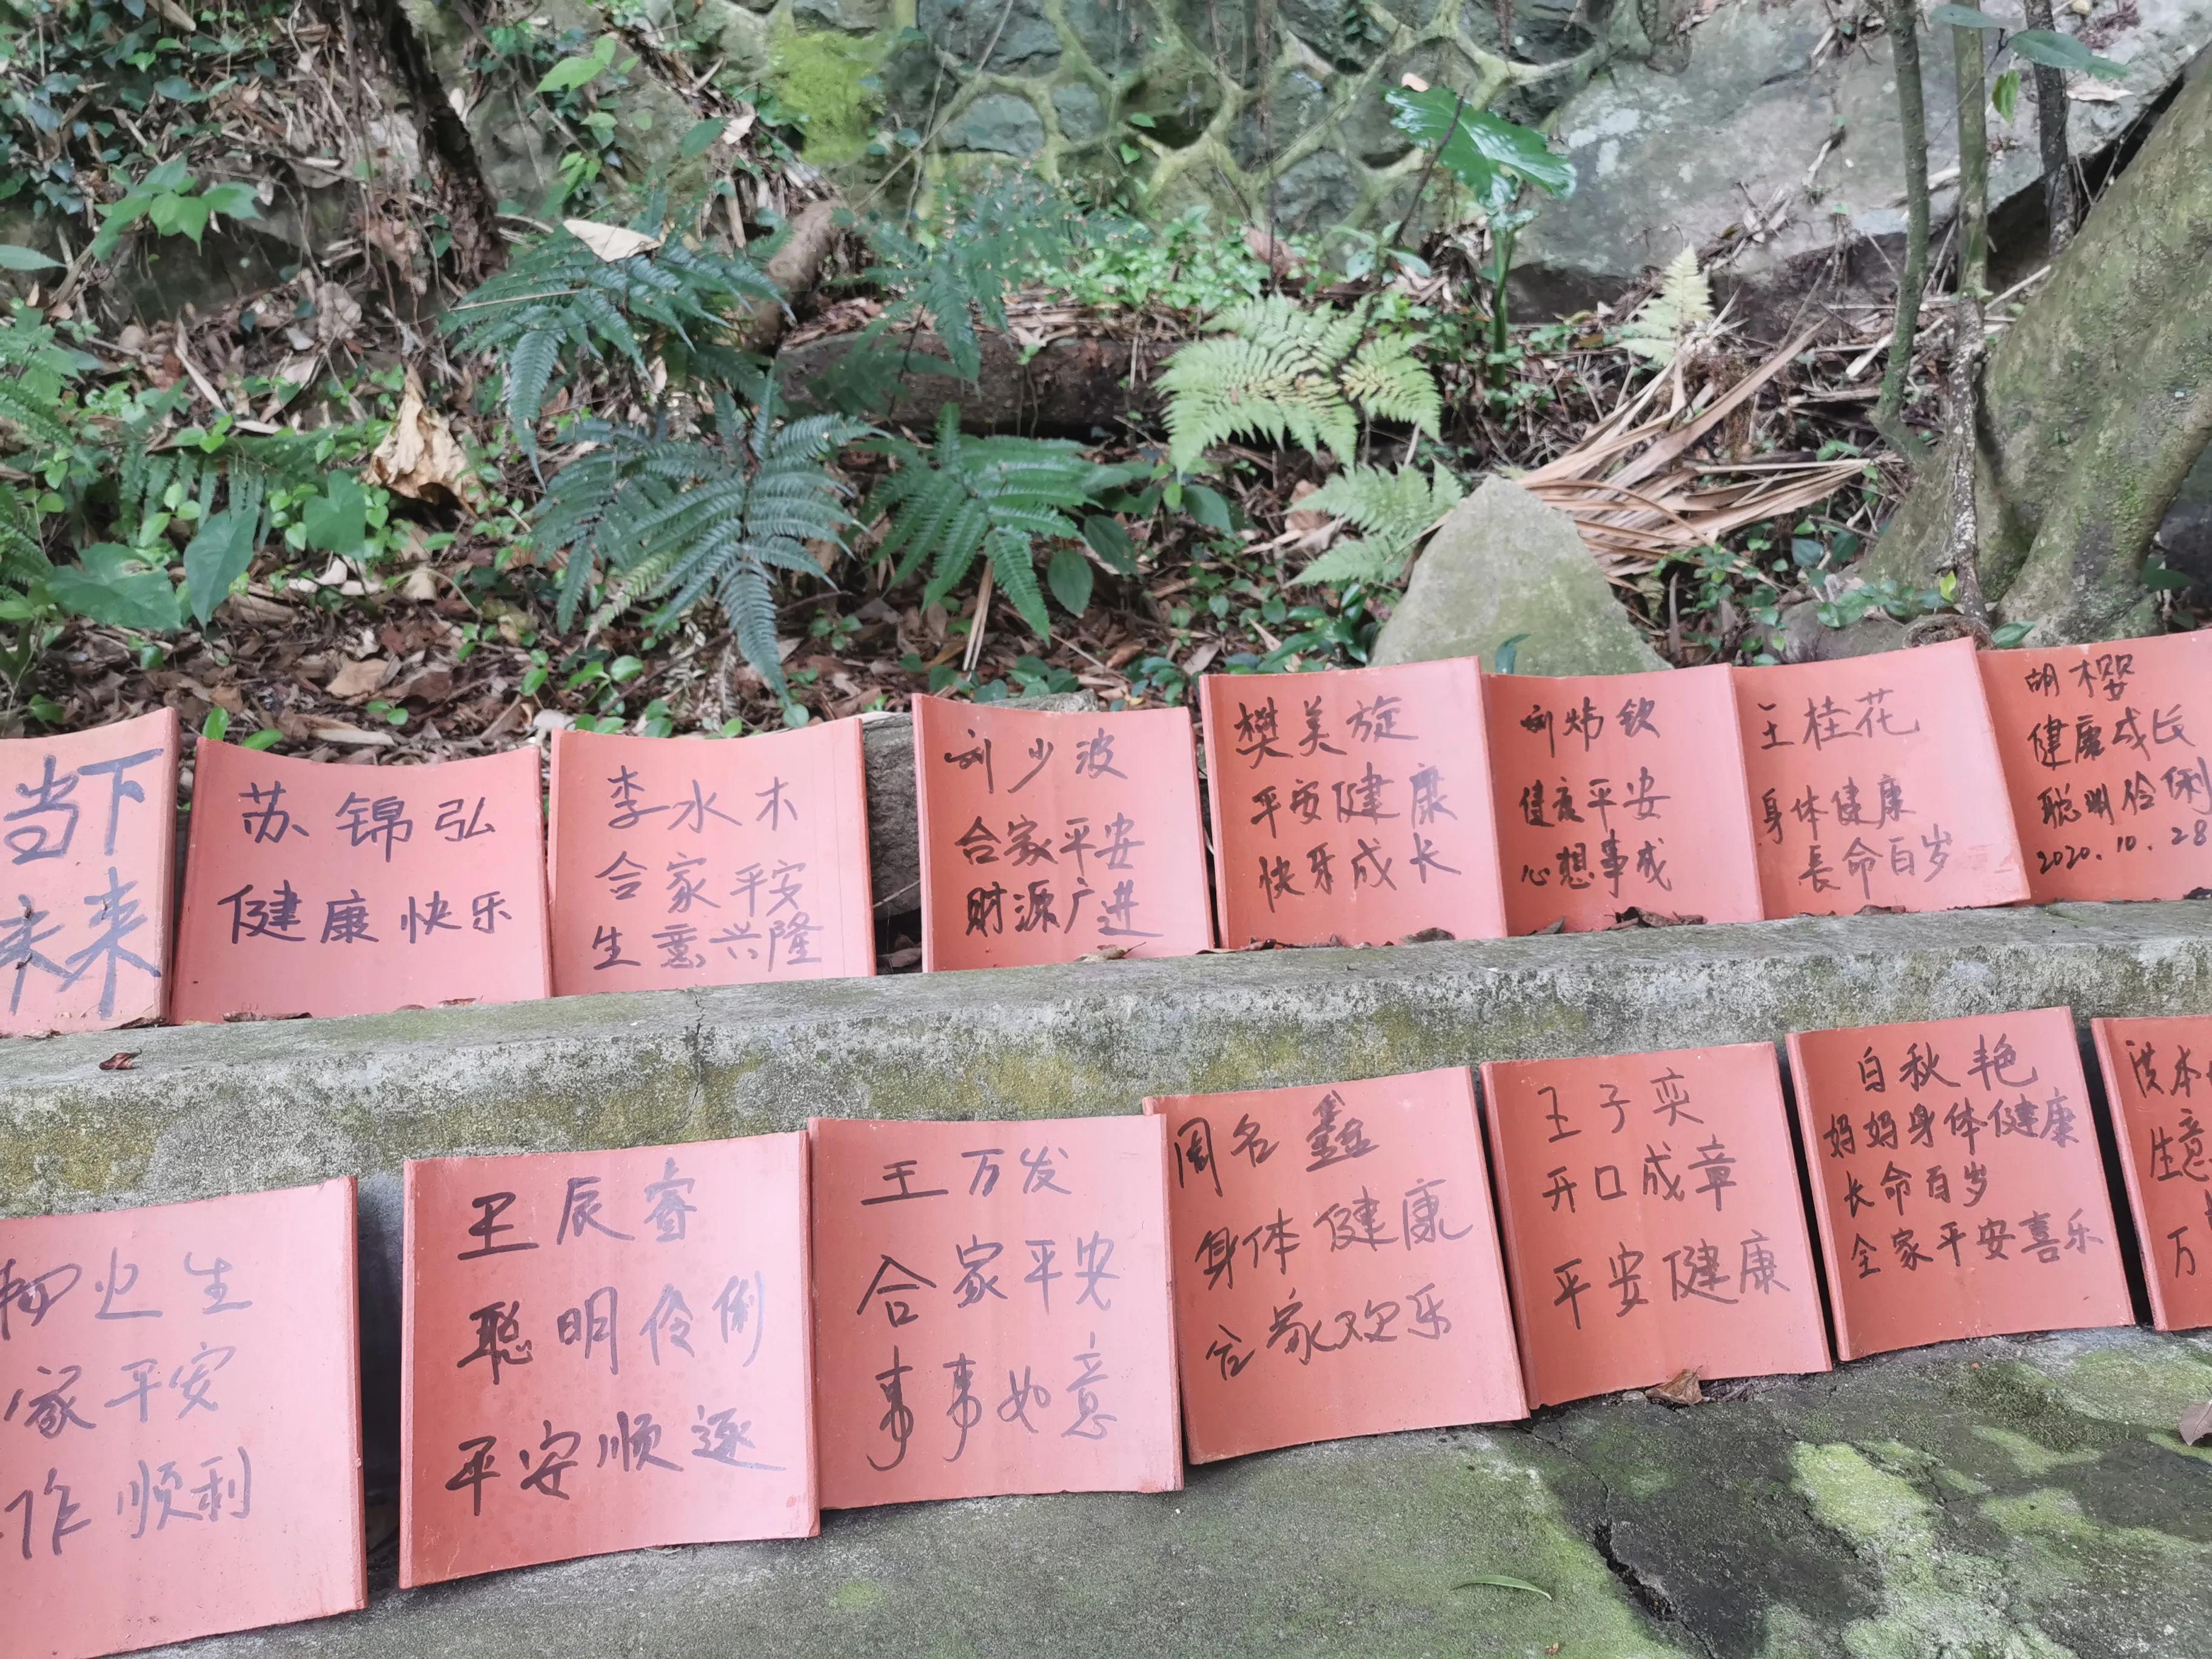 当下
未来
苏锦弘
健康快乐
李水木
合家平安
生意兴隆
刘少波
合家平安
财源广进
樊美旋
平安健康
快牙成长
刘炜钦
健康平安
心想事成
王桂花
身体健康
長命百岁
胡樱
健康成长
聪明伶俐
2020.10.28
生
家平安
作顺利
王辰睿
聪明伶俐
平安顺遂
王万发
合家平安
事事如意
周名鑫
身体健康
合家欢乐
王子奕
开口成章
平安健康
白秋艳
妈妈身体健康
长命百岁
全家平安喜乐
洪本
生意
万